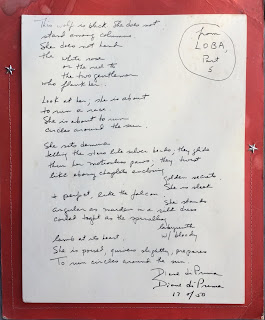 This wolf is black. She does not
stand among columns
She does not hand
the white rose
or the red to
the two gentlemen
who flank her.
Look at her, she is about
to run a race
She is about to run
circles around the sun.
She sets
telling the stars like silver beads, they glide
thru her motionless paws; they twist
like ebony chaplets
golden secrets
She is sleek
& perfect, like the falcon
She stands
angular as murder in a silk dress
coiled taught as the spiralling
labyrinth
w/ bloody
lamb at its heart
She is poised, quivers slightly, prepares
To run circles around the sun.
Diane di Prima
Diane di Prima
17 of 50
from
LOBA,
Part
5